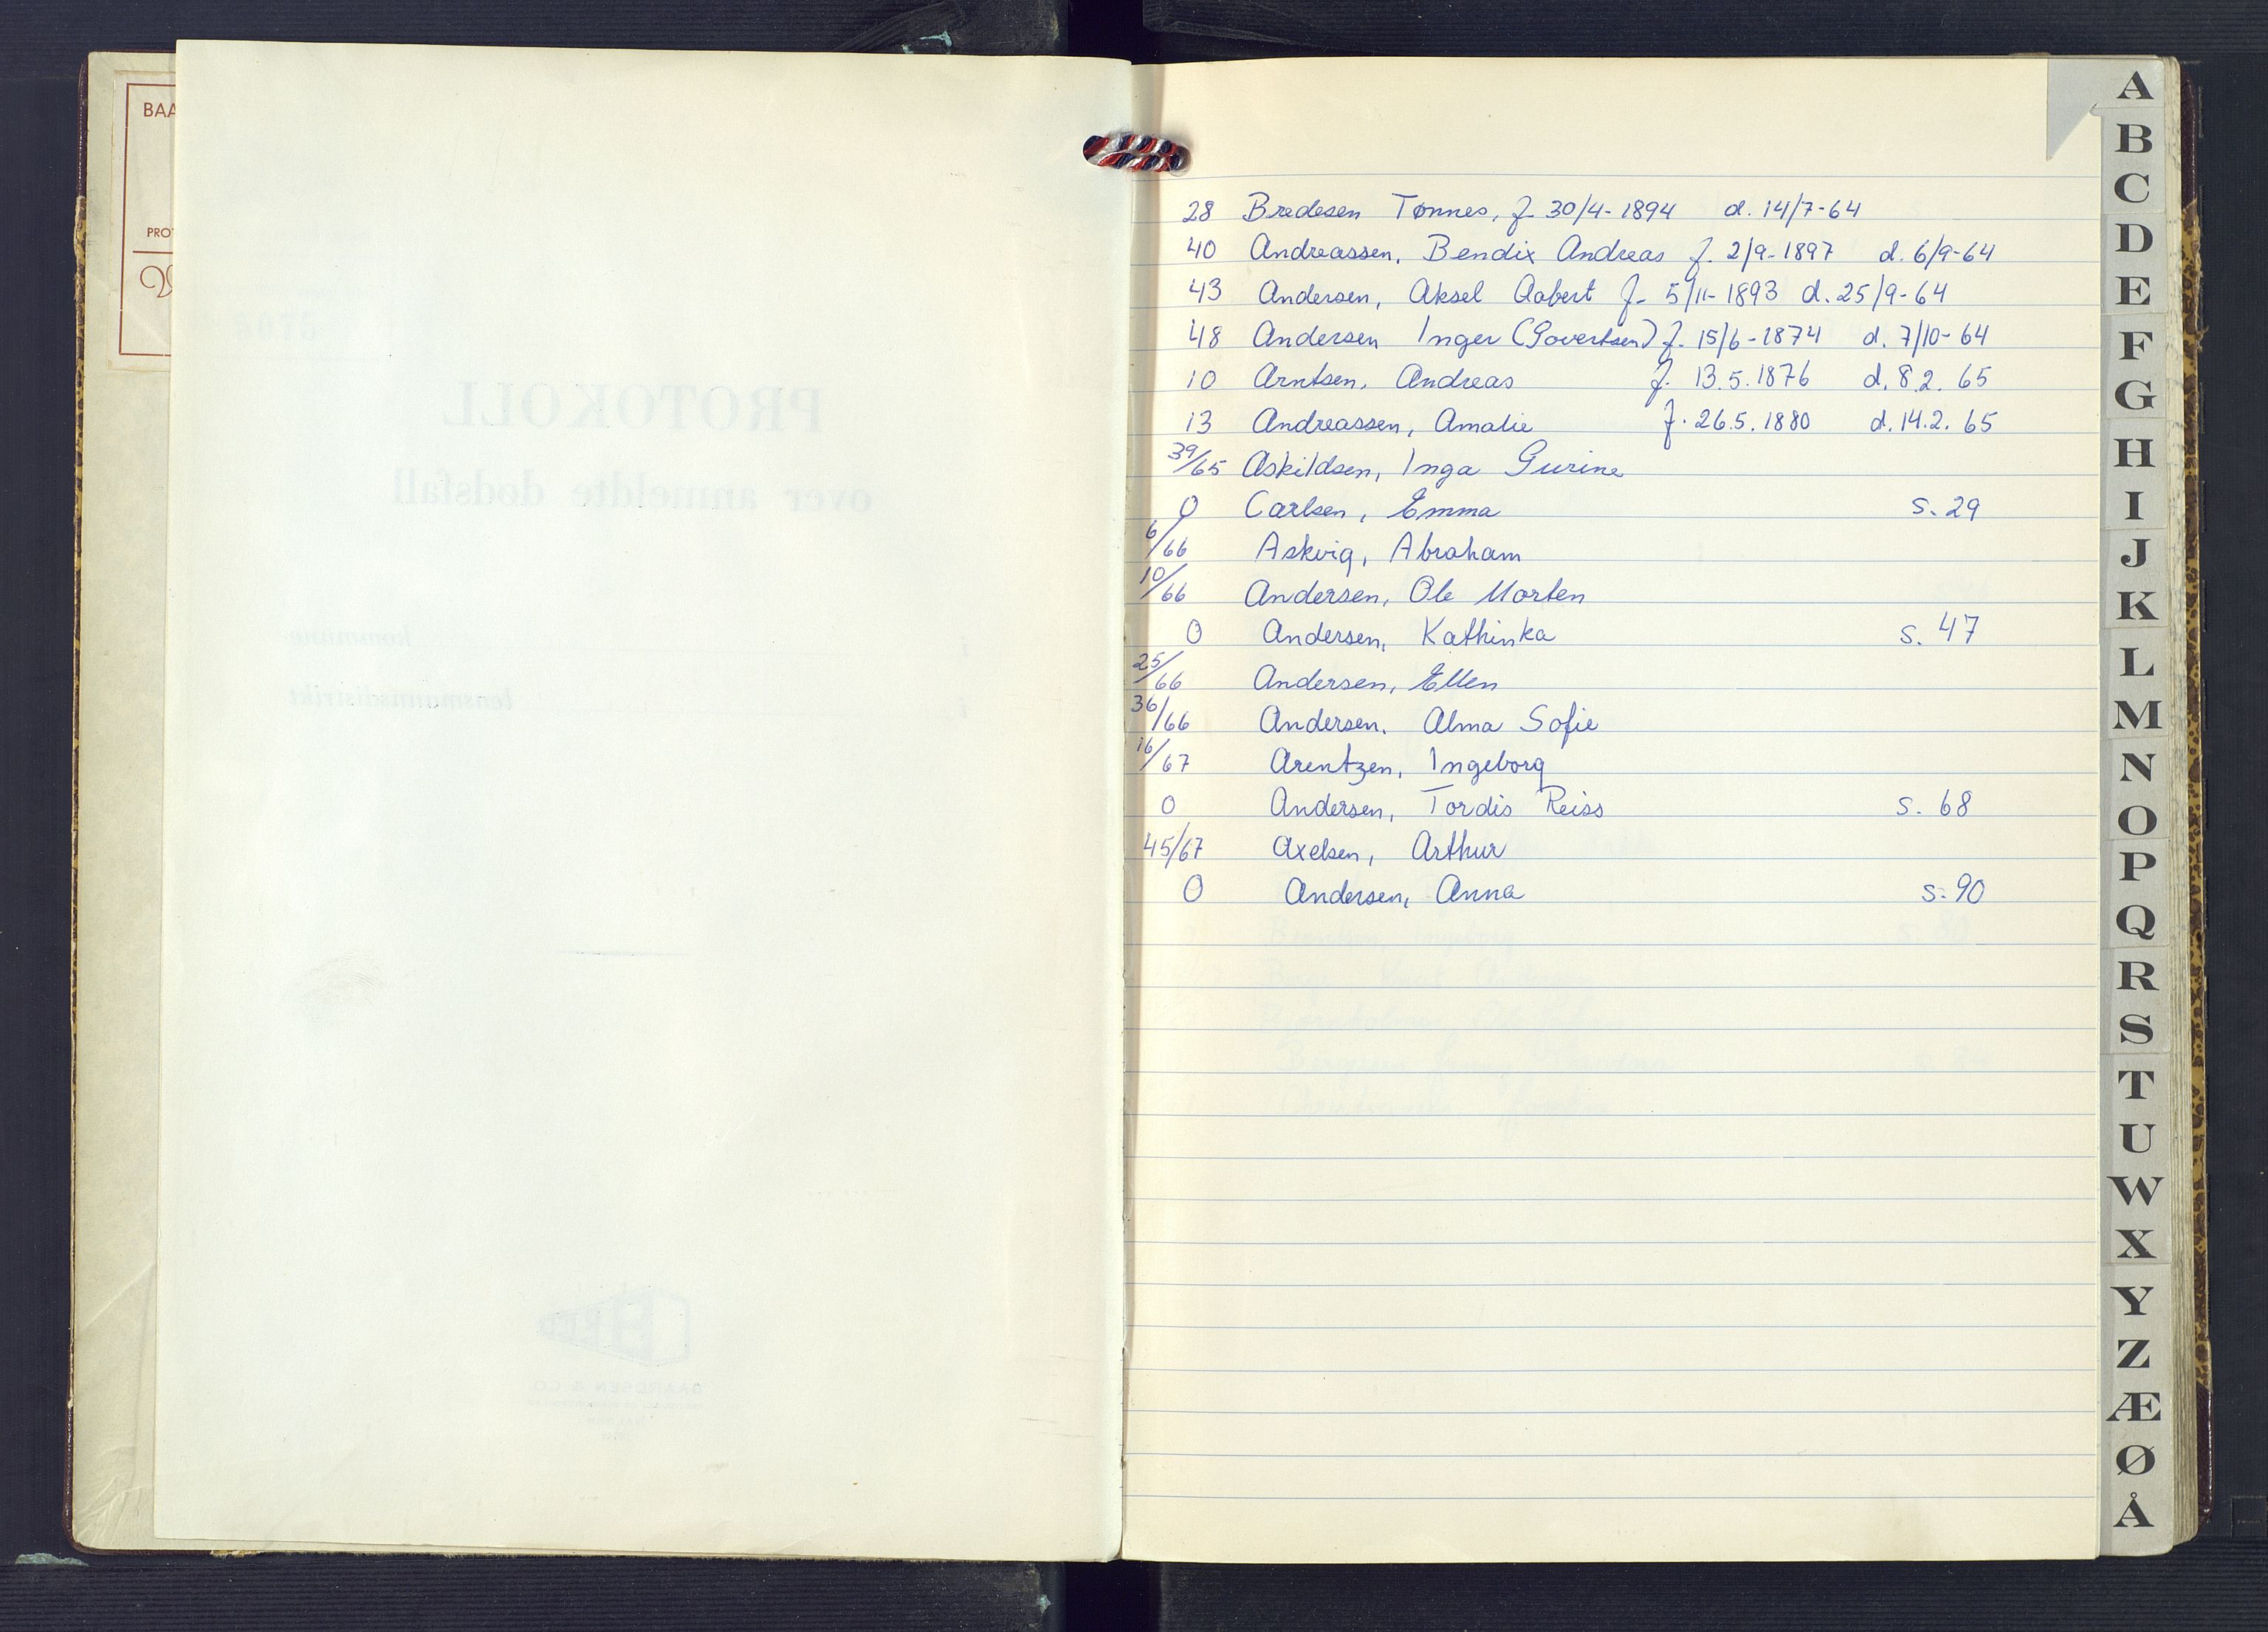 BAA
PRO
PROTOKOLL
over anmeldte dødsfall
i kommune
i lensmannsdistrikt
28 Bredesen Tønnes, f. 30/4-1894 d. 14/7-64
40 Andreassen, Bendix Andreas f. 2/9-1897 d. 6/9-64
43 Andersen, Aksel Aabert f. 5/11-1893 d. 25/9-64
48 Andersen Inger (Govertsen) f. 15/6-1874 d. 7/10-64
10 Arntsen, Andreas f. 13.5.1876 d. 8.2.65
13 Andreassen, Amalie f. 26.5.1880 d. 14.2.65
39/65 Askildsen, Inga Gurine
0 Carlsen, Emma s. 29
6/66 Askvig, Abraham
10/66 Andersen, Ole Morten
0 Andersen, Kathinka s. 47
25/66 Andersen, Ellen
36/66 Andersen, Alma Sofie
16/67 Arentzen, Ingeborg
0 Andersen, Tordis Reiss s. 68
45/67 Axelsen, Arthur
0 Andersen, Anna s. 90
A
B
C
D
E
F
G
H
I
J
K
L
M
N
O
P
Q
R
S
T
U
W
X
Y
Z
Æ
Ø
Å